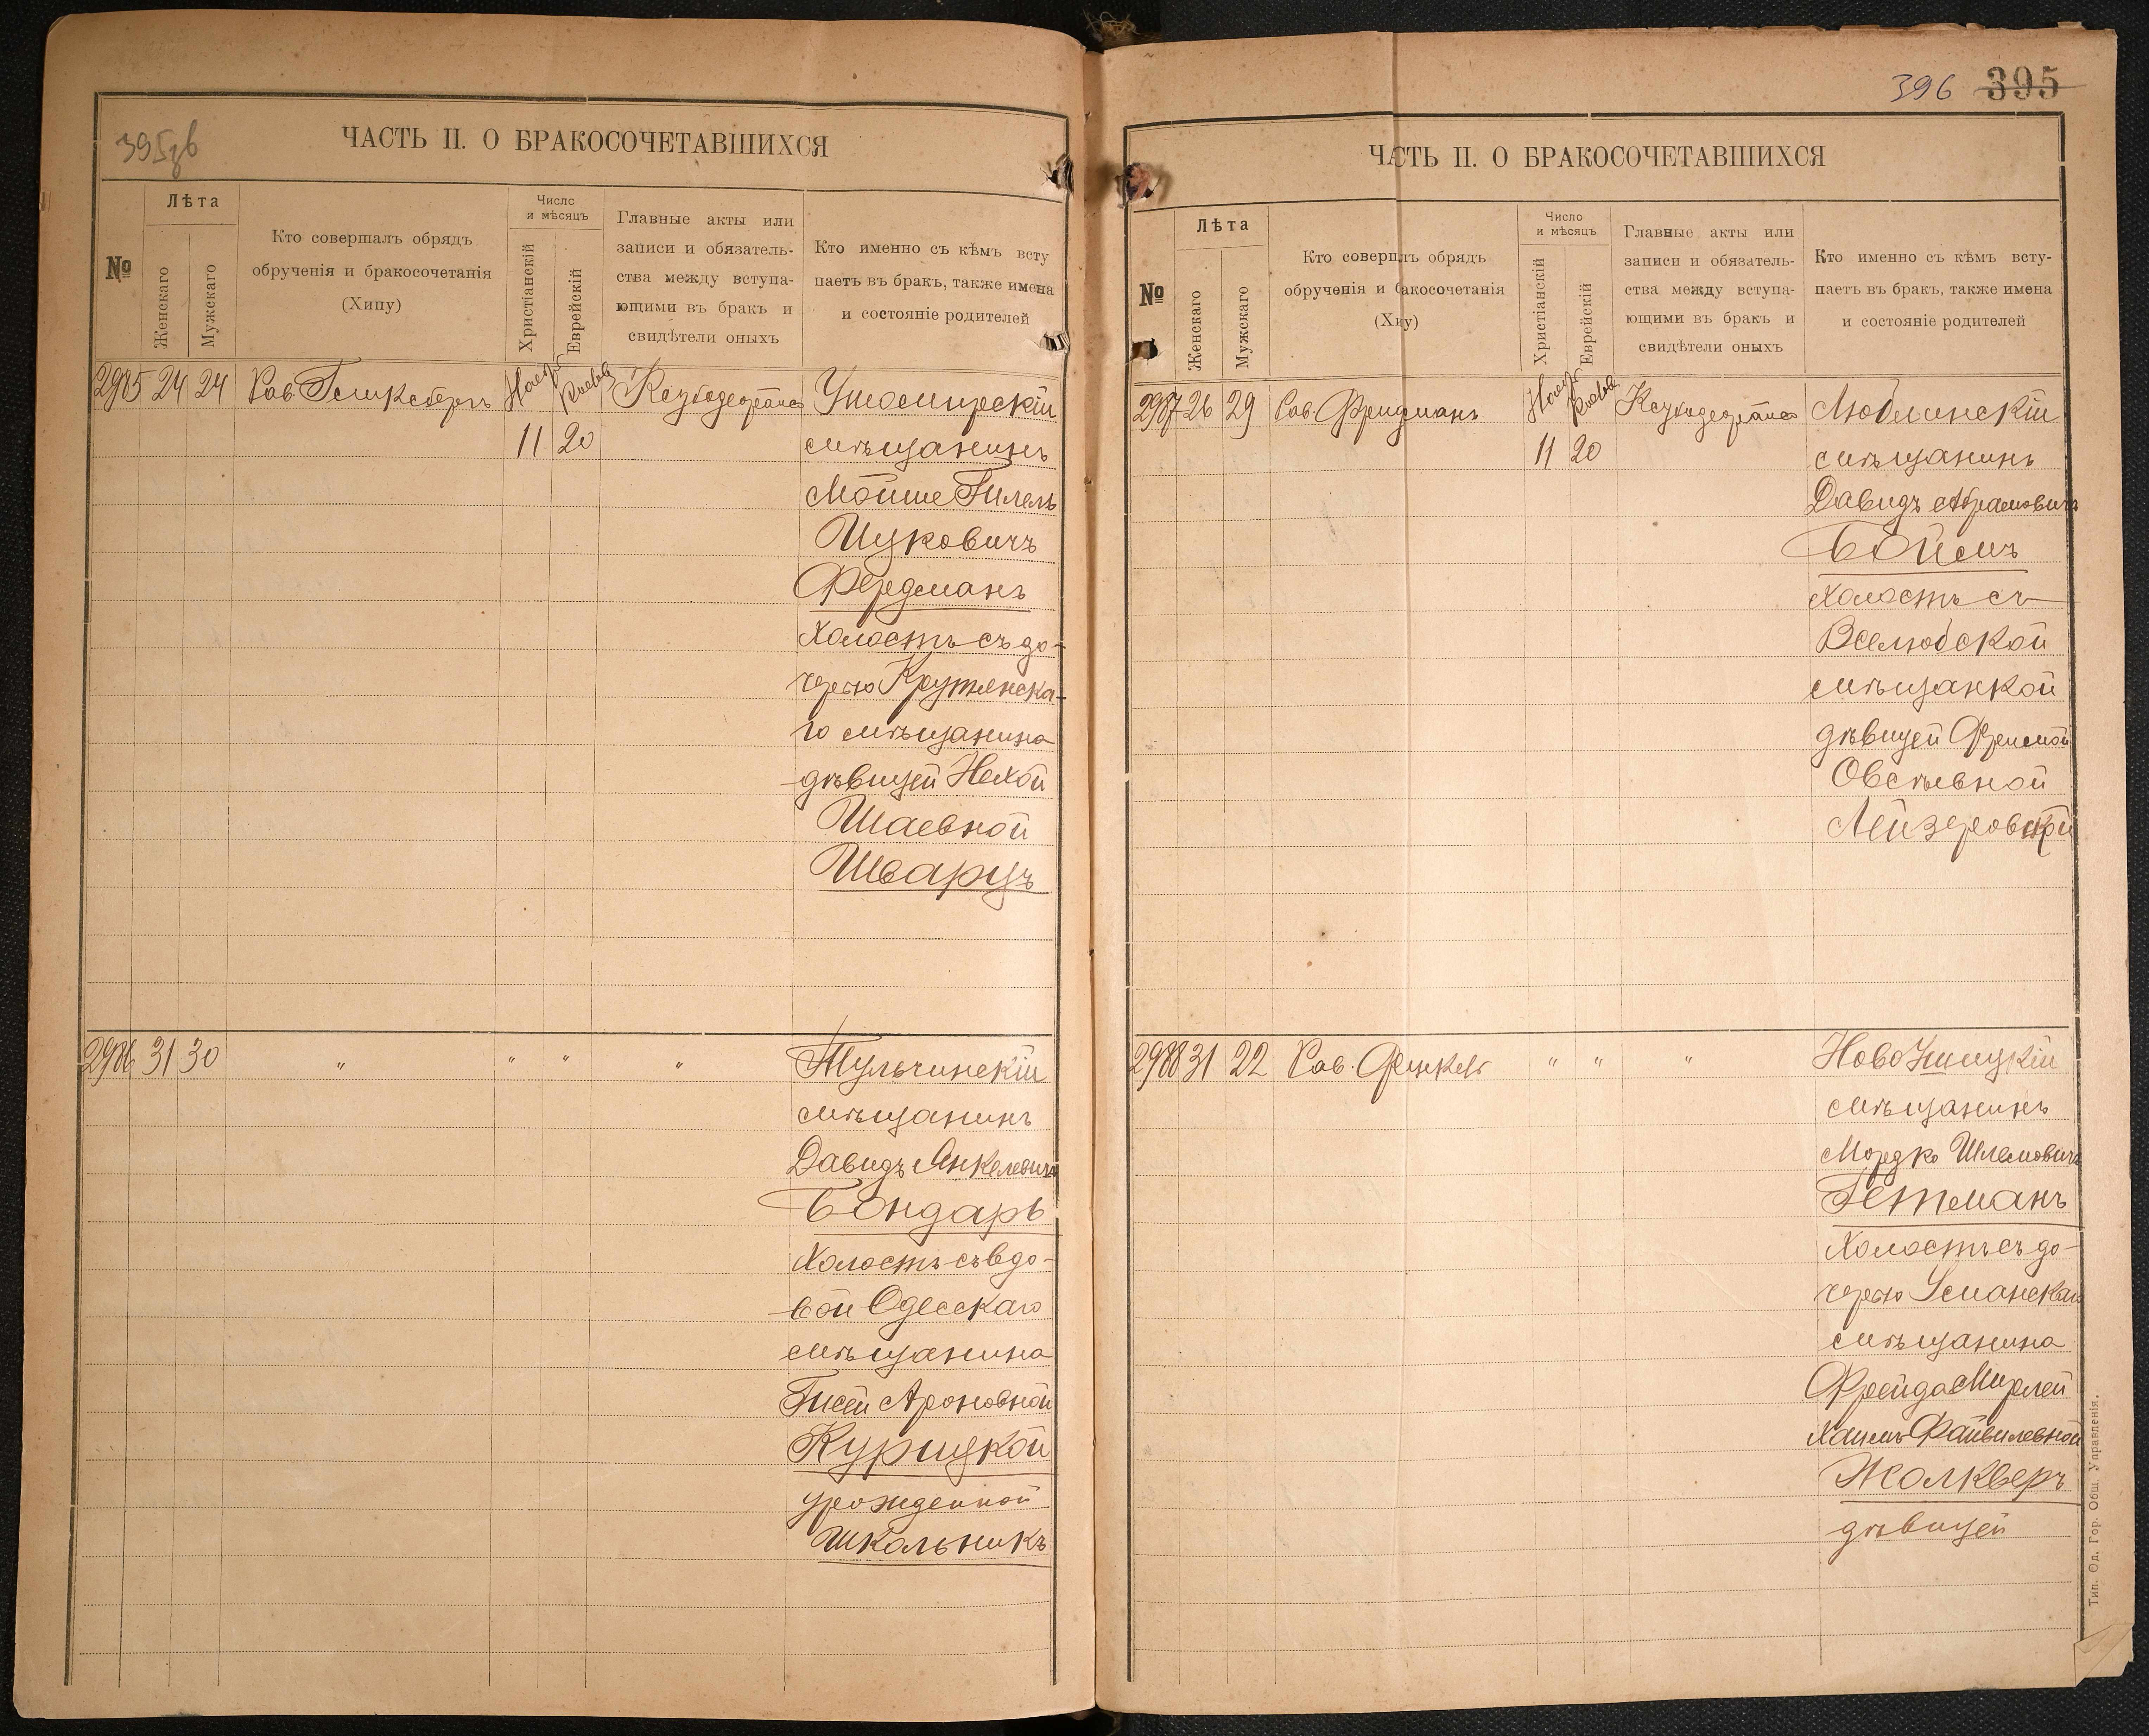 395зв
ЧАСТЬ II. О БРАКОСОЧЕТАВШИХСЯ
№
Лѣта
Женскаго
Мужскаго
Кто совершалъ обрядъ
обрученія и бракосочетанія
(Хипу)
Число
и мѣсяцъ
Христіанскій
Еврейскій
Главные акты или
записи и обязатель-
ства между вступа-
ющими въ бракъ и
свидѣтели оныхъ
Кто именно съ кѣмъ всту
паетъ въ бракъ, также имена
и состояніе родителей
2985 24 24 Рав. Нояб. Кислев
Ушомирскій
11 20 мѣщанинъ
Мойше Гилель
Ицковичъ
Фердманъ
холостъ съ до-
черью Крутянска-
го мѣщанина
дѣвицей Нехой
Шаевной
Шварцъ
2986 31 30 " " " " Тульчинскій
мѣщанинъ
Давидъ Янкелевичъ
Бондарь
холостъ съ вдо-
вой Одесскаго
мѣщанина
Гисей Ароновной
Курицкой
урожденной
Школьникъ
396 395
ЧАСТЬ II. О БРАКОСОЧЕТАВШИХСЯ
№
Лѣта
Женскаго
Мужскаго
Кто совершлъ обрядъ
обрученія и бакосочетанія
(Хиу)
Число
и мѣсяцъ
Христіанскій
Еврейскій
Главные акты или
записи и обязатель-
ства между вступа-
ющими въ бракъ и
свидѣтели оныхъ
Кто именно съ кѣмъ всту-
паетъ въ бракъ, также имена
и состояніе родителей
2987 26 29 Рав. Фридманъ Нояб. Кислев
Люблинскій
11 20 мѣщанинъ
Давидъ Абрамовичъ
Боймъ
холостъ съ
Вселюбской
мѣщанкой
дѣвицей Фрумой
Овсѣевной
Лейзеровской
2988 31 22 Рав. " " " Ново Ушицкій
мѣщанинъ
Мордко Шлемовичъ
Гетманъ
холостъ съ до-
черью Уманскаго
мѣщанина
Фрейда Мирлей
Хаимъ Файвилевной
Жолкверъ
дѣвицей
Тип. Од. Гор. Общ. Управленія.